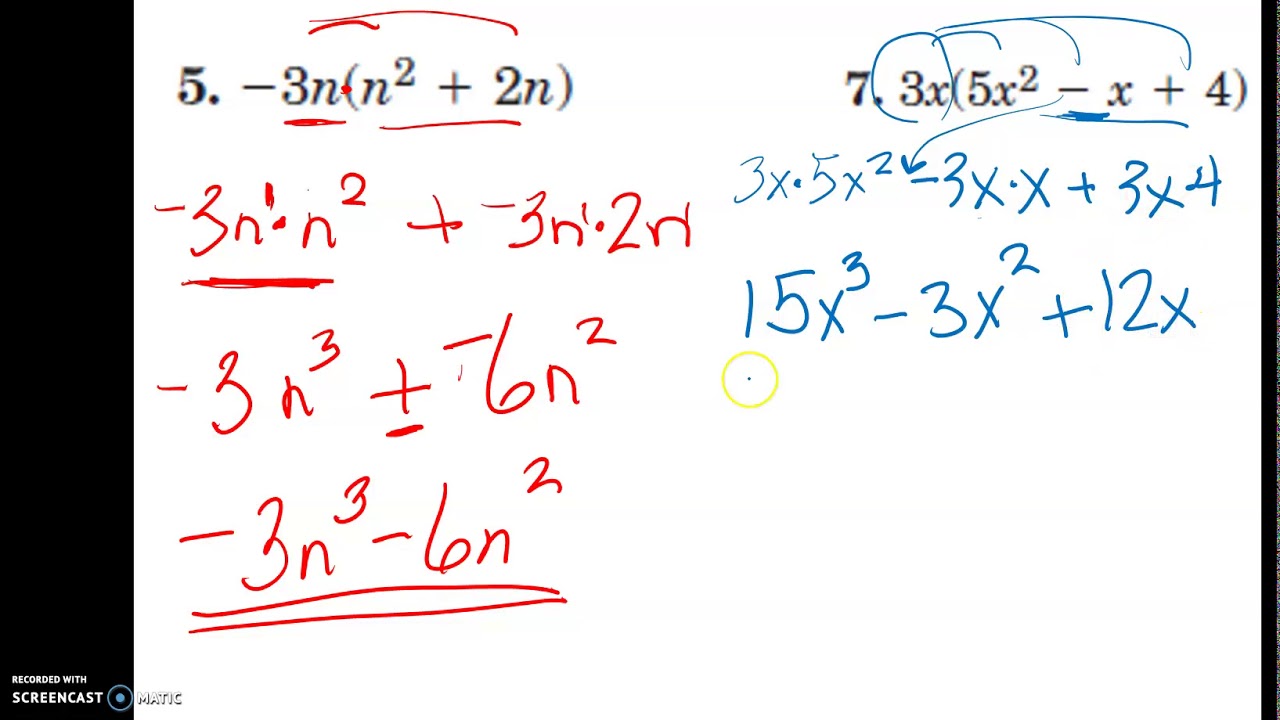 5. −3n(n² + 2n)
-3n¹·n² + -3n¹·2n¹
-3n³ + -6n²
-3n³-6n²
7. 3x(5x² − x + 4)
3x·5x² -3x·x + 3x4
15x³ - 3x² + 12x
RECORDED WITH
SCREENCAST MATIC